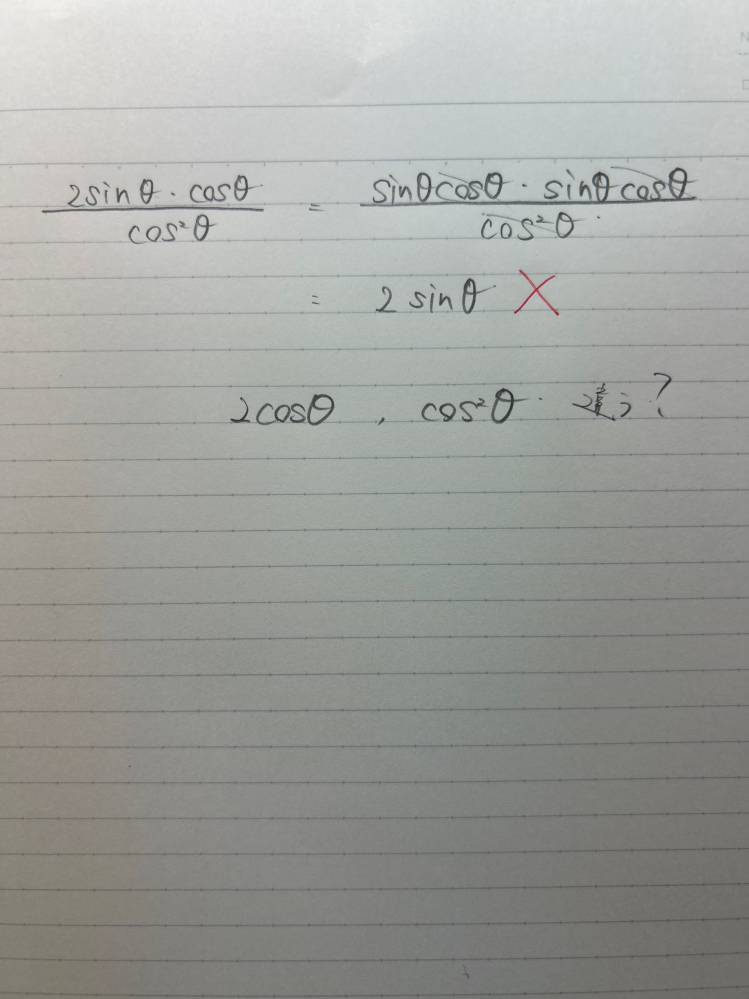 2sinθ・cosθ / cos²θ = sinθcosθ・sinθcosθ / cos²θ
= 2sinθ ×
2cosθ , cos²θ 違う?